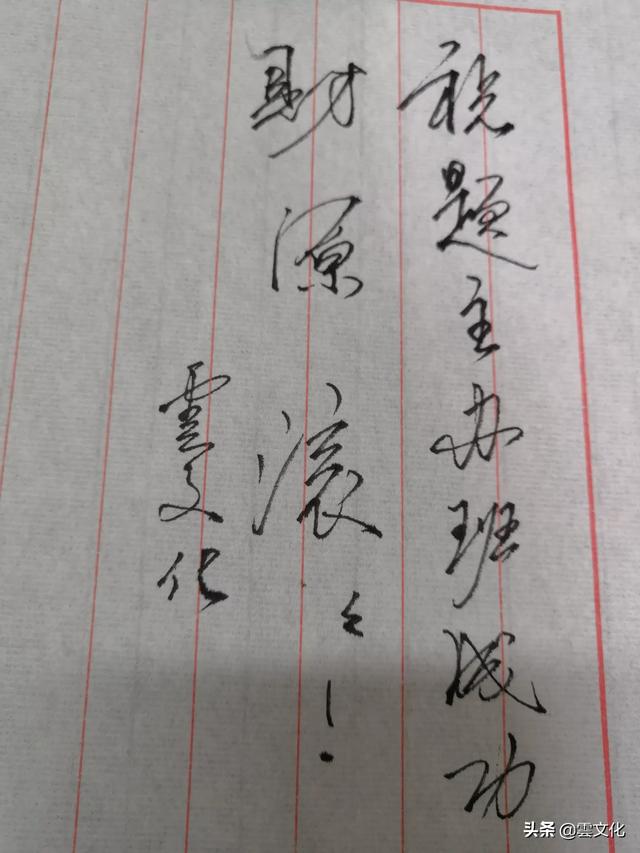 祝题主办班成功
财源滚々！
雲文化
头条 @雲文化